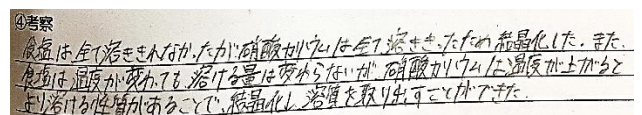 ④考察
食塩は全て溶ききれなかったが硝酸カリウムは全て溶ききったため結晶化した。また、
食塩は温度が変わっても、溶ける量は変わらないが、硝酸カリウムは温度が上がると
より溶ける性質があることで、結晶化し、溶質を取り出すことができた。